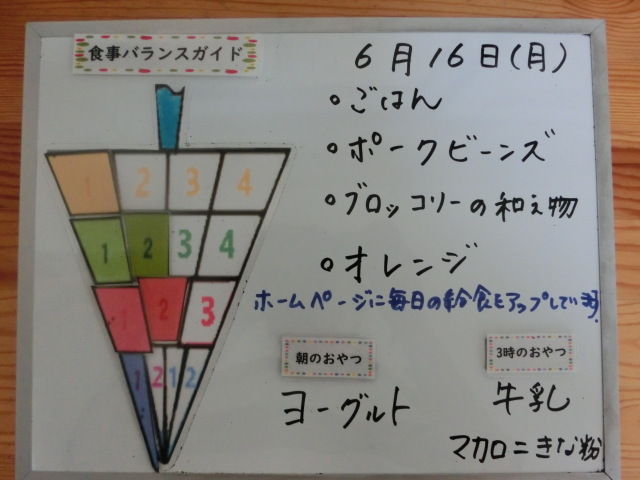 食事バランスガイド
6月16日(月)
・ごはん
・ポークビーンズ
・ブロッコリーの和え物
・オレンジ
ホームページに毎日の給食をアップしてます。
1 2 3 4
1 2 3 4
1 2 3
1 2 1 2
朝のおやつ
ヨーグルト
3時のおやつ
牛乳
マカロニきな粉